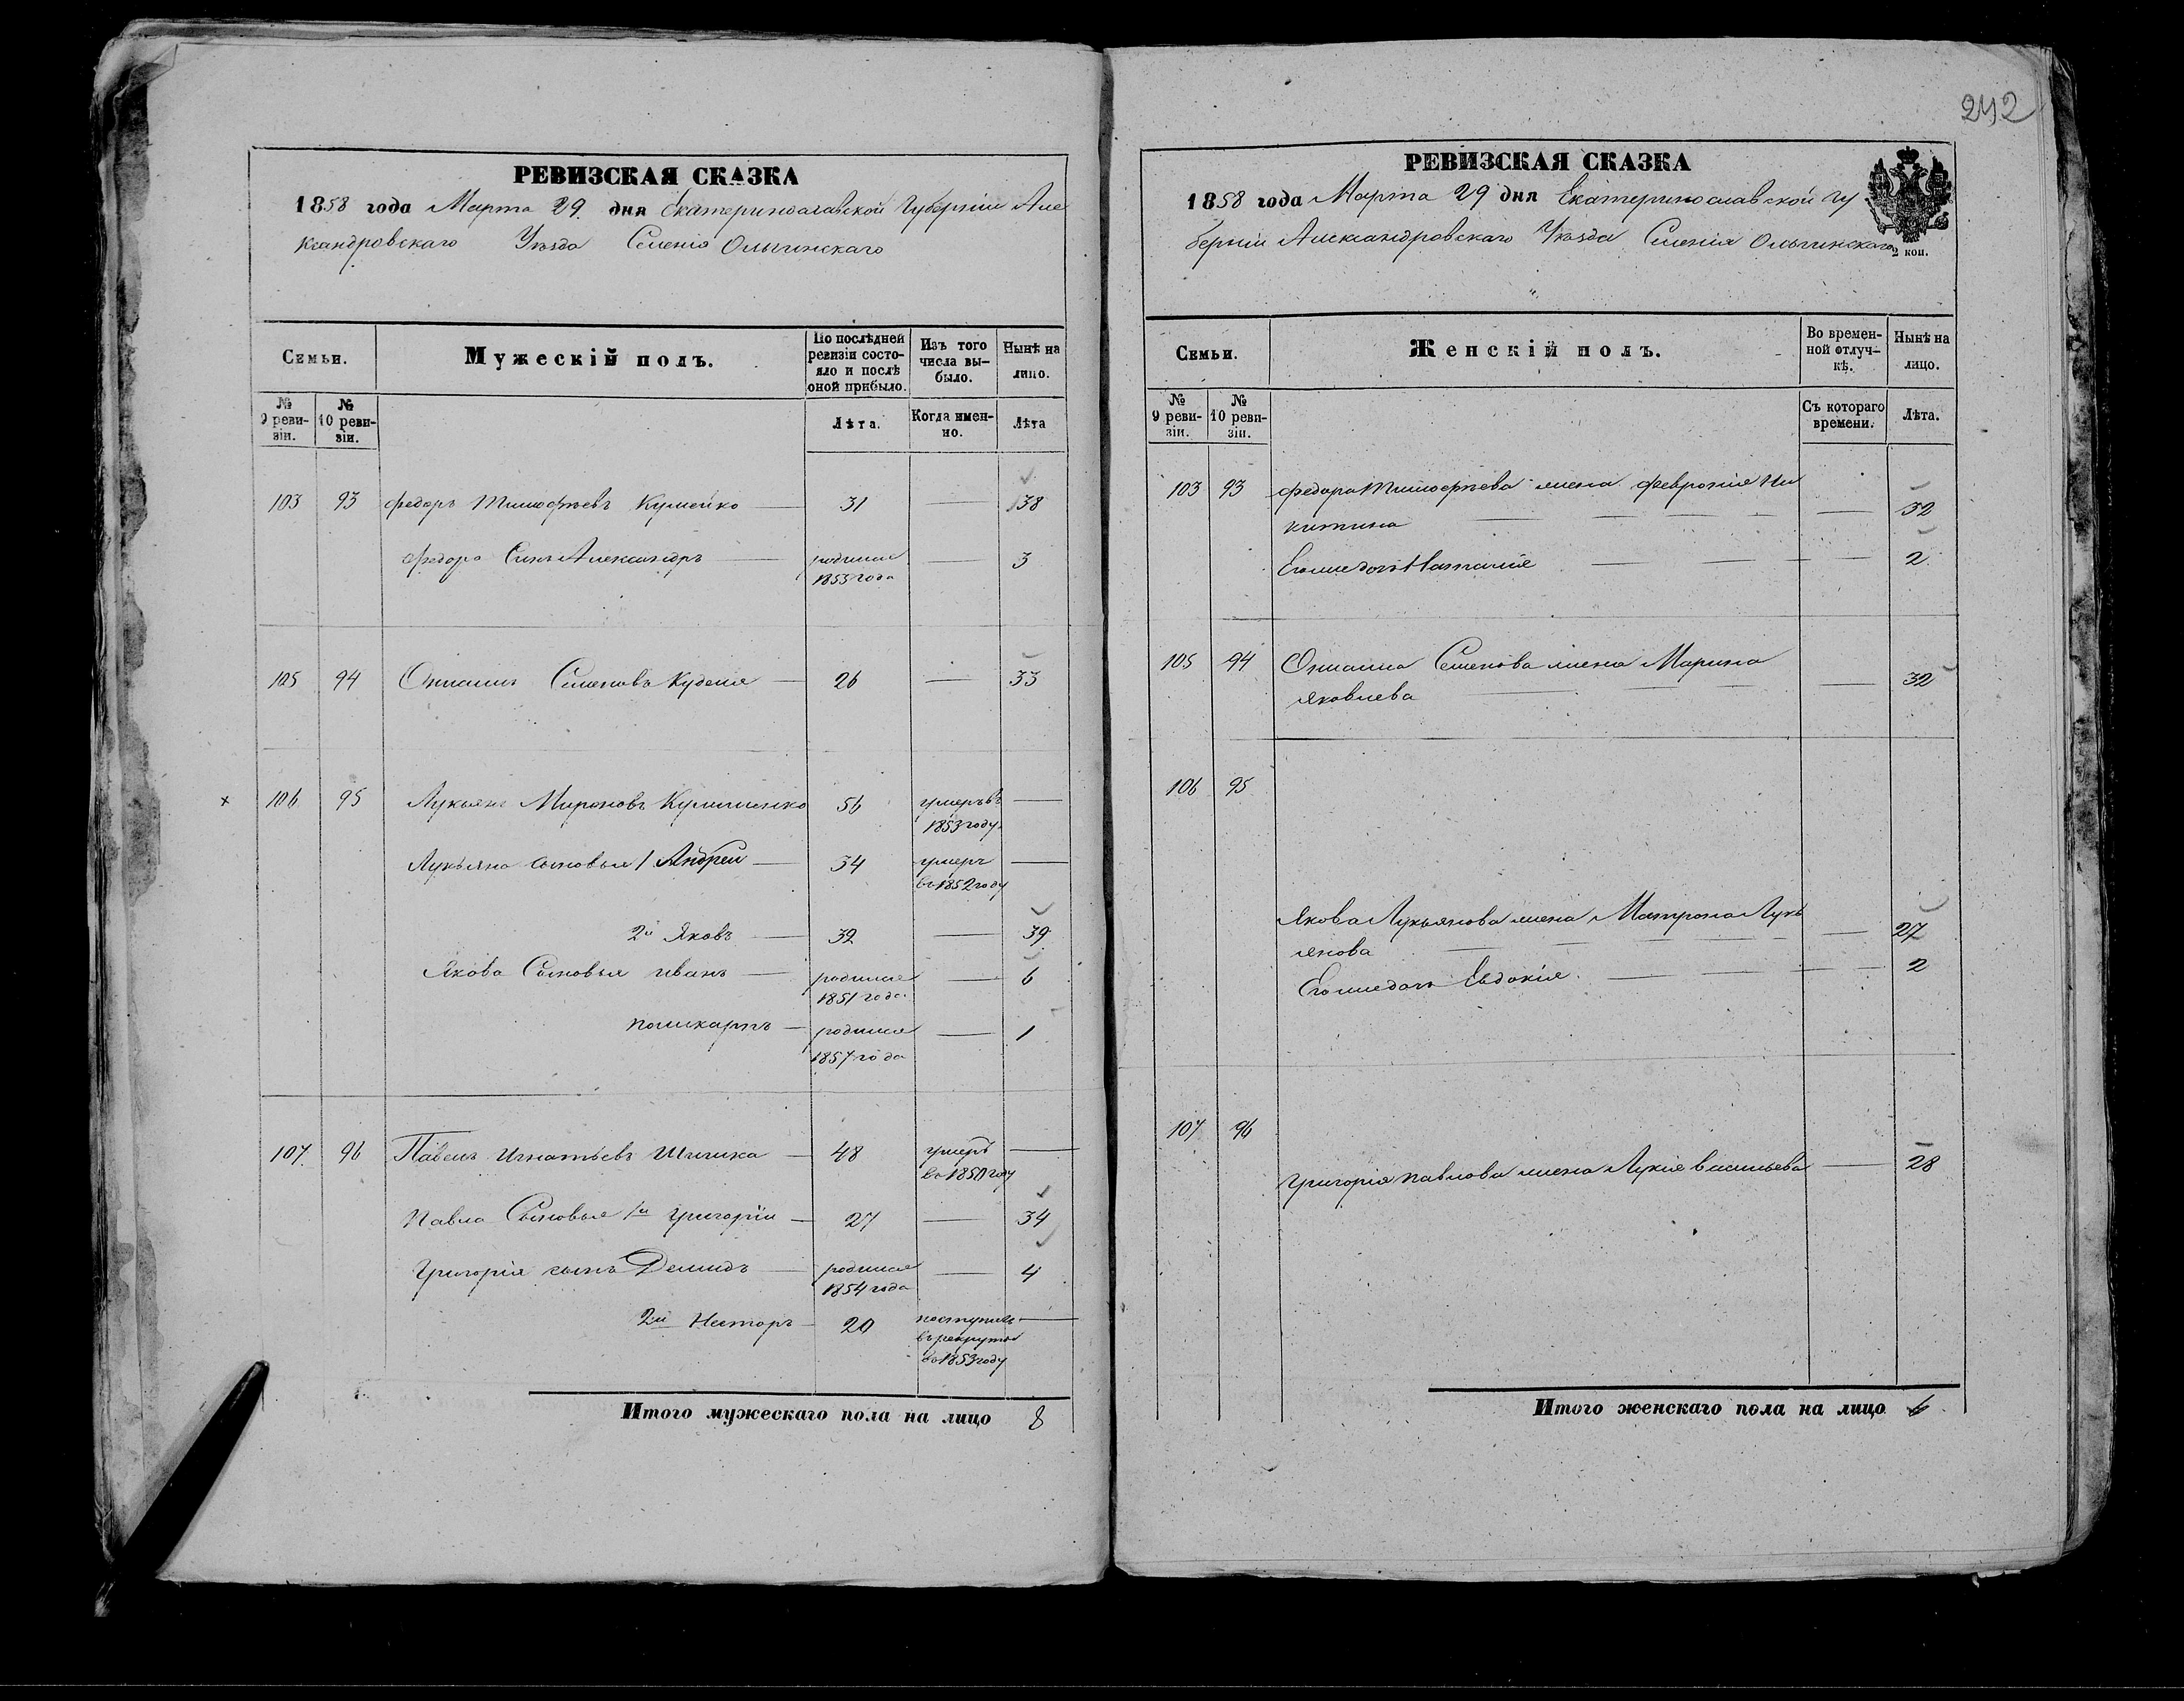 242
РЕВИЗСКАЯ СКАЗКА
1858 года Марта 29 дня Екатеринославской Губерніи Але
ксандровскаго Уѣзда Селенія Ольгинскаго
Семьи.
Мужескій полъ.
По послѣдней ревизіи состояло и послѣ оной прибыло.
Изъ того числа выбыло.
Нынѣ на лицо.
№ 9 ревизіи.
№ 10 ревизіи.
Лѣта.
Когда именно.
Лѣта
103 93 Федоръ Тимофѣевъ 31 — 38
Федора Сынъ Александръ — родился — 3
1853 года
105 94 Семеновъ — 26 — 33
106 95 Лукьянъ Мироновъ 56 умеръ въ —
1853 году
Лукьяна сыновья 1 Андрей — 34 умеръ —
въ 1852 году
2й Яковъ — 32 — 39
Якова Сыновья иванъ — родился — 6
1851 года
поликарпъ — родился — 1
1857 года
107 96 Павелъ Игнатьевъ — 48 умеръ —
въ 1850 году
Павла Сыновья 1й Григорій — 27 — 34
Григорія сынъ Демидъ — родился — 4
1854 года
2й Несторъ — 20 поступилъ —
въ рекруты
въ 1853 году
Итого мужескаго пола на лицо 8
РЕВИЗСКАЯ СКАЗКА
1858 года Марта 29 дня Екатеринославской Гу
берніи Александровскаго Уѣзда Селенія Ольгинскаго
2 коп.
Семьи.
Женскій полъ.
Во временной отлучкѣ.
Нынѣ на лицо.
№ 9 ревизіи.
№ 10 ревизіи.
Съ котораго времени.
Лѣта.
103 93 Федора Тимофѣева жена Февронія Ни
китина — — 32
Его же дочь Наталія — — 2
105 94 Семенова жена Марина
Яковлева — — 32
106 95
Якова Лукьянова жена Матрона Лукь
янова — — 27
Его же дочь Евдокія — — 2
107 96
Григорія Павлова жена Лукія васильева — 28
Итого женскаго пола на лицо 6